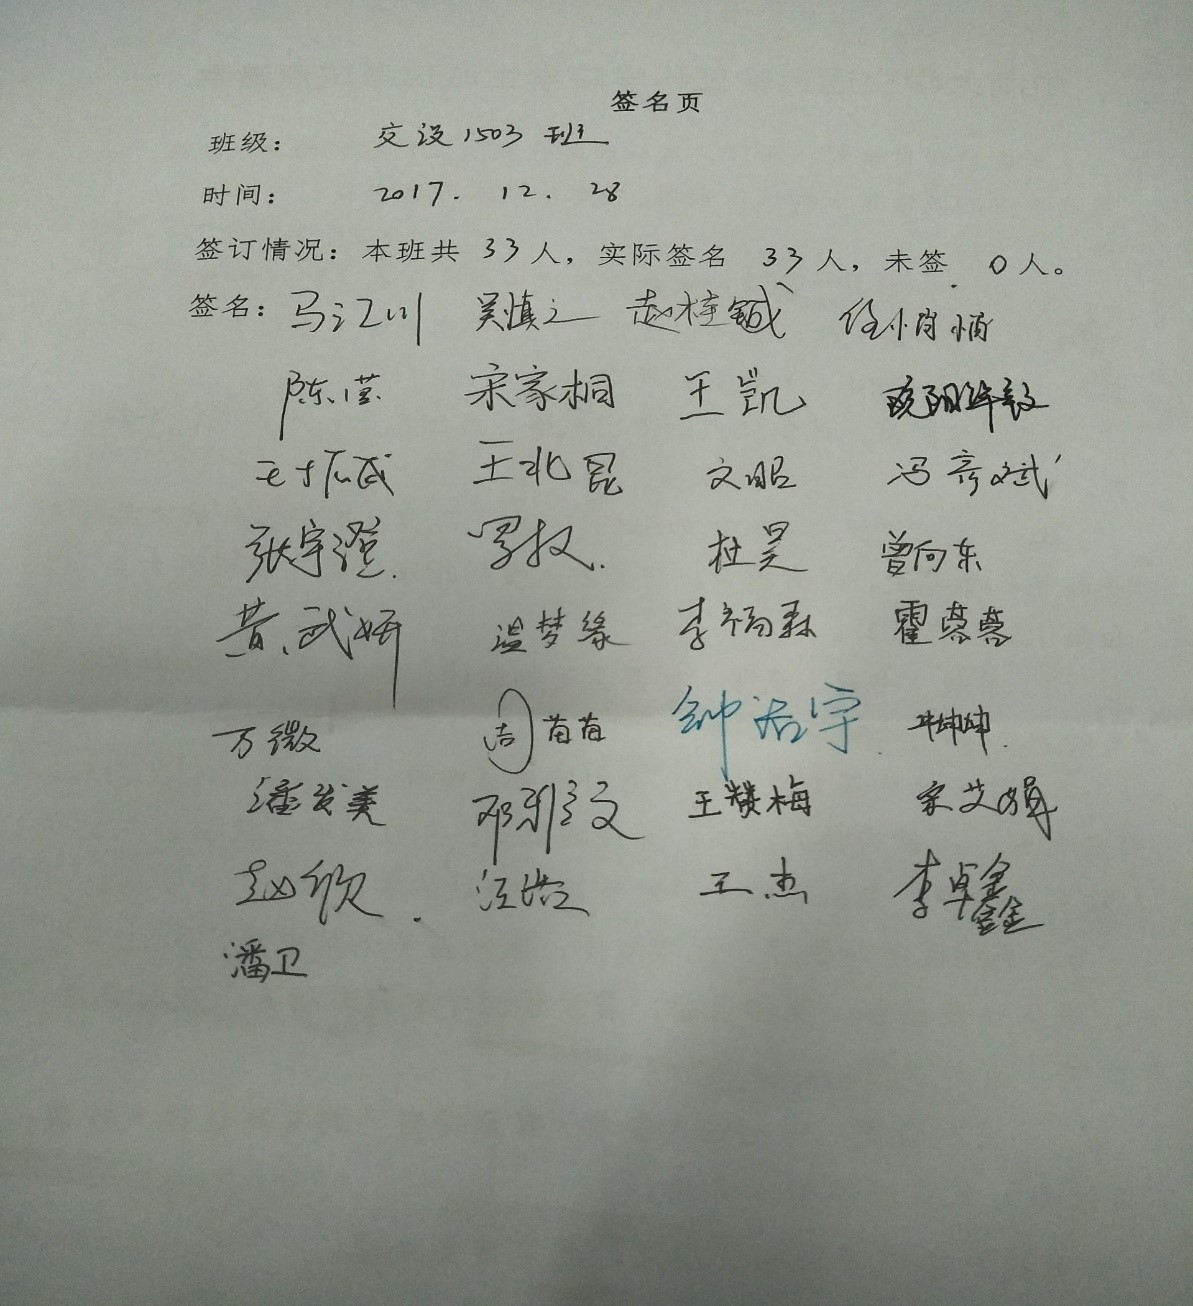 签名页
班级： 交设1503班
时间： 2017. 12. 28
签订情况：本班共 33人，实际签名 33人，未签 0人。
签名：马江川 吴慎之 赵桂铖 任悄悄
陈谨 宋家桐 王凯 欧阳
王振武 王北昆 文昭 冯彦斌
张宇澄 罗权 杜昊 曾向东
黄武妍 温梦缘 李福森 霍蓉蓉
万微 周苗苗 钟浩宇 坤坤
潘发美 邓雅文 王赞梅 宋艾娟
赵欣 汪浩 王杰 李卓鑫
潘卫